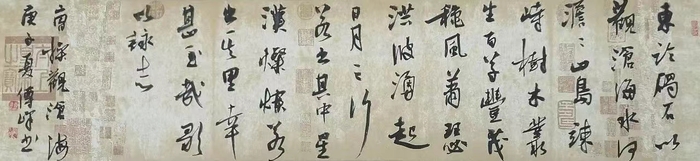 東臨碣石以
觀滄海水何
澹〻山島竦
峙樹木叢
生百草豐茂
秋風蕭瑟
洪波涌起
日月之行
若出其中星
漢燦爛若
出其里幸
甚至哉歌
以詠志
曹操觀滄海
庚子夏傅峰书